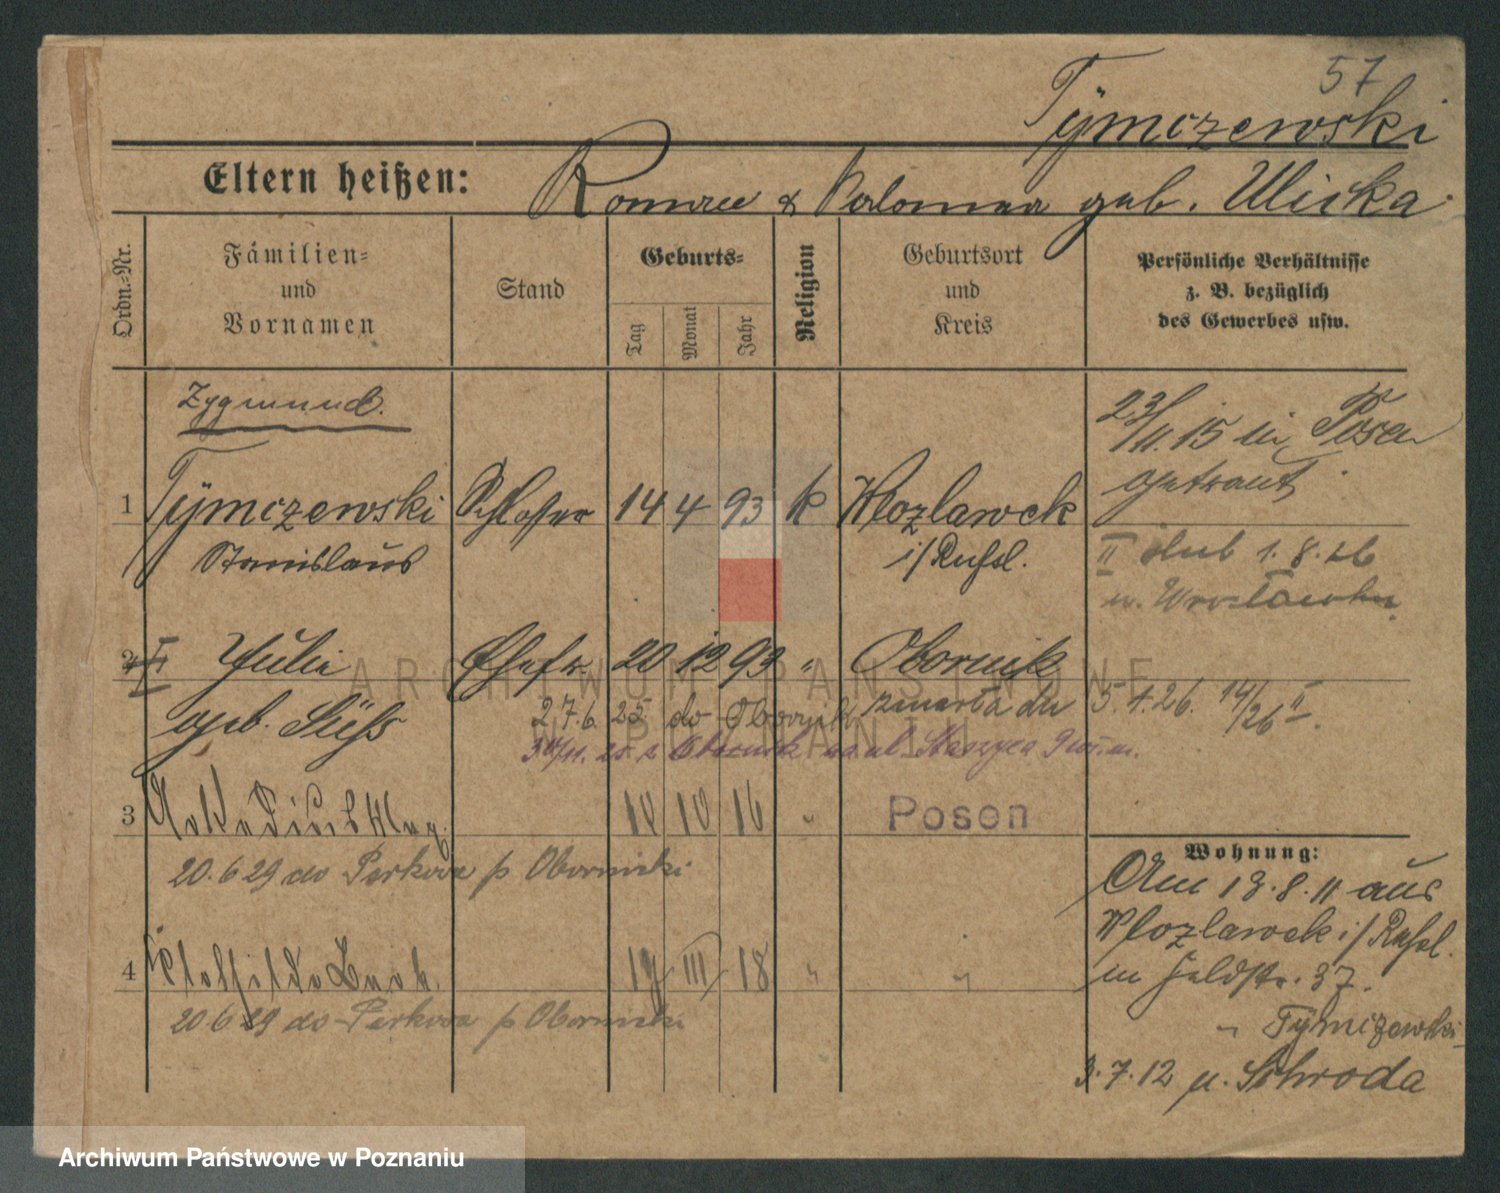 57
Tymczewski
Eltern heißen: Roman & Salomea geb. Ulicka
Ordn.-Nr.
Familien-
und
Vornamen
Stand
Geburts-
Tag
Monat
Jahr
Religion
Geburtsort
und
Kreis
Persönliche Verhältnisse
z. B. bezüglich
des Gewerbes usw.
Zygmund.
23/11.15 in Posen
getraut
1 Tymczewski Schlosser 14 4 93 k Wlozlawek
Stanislaus i/Russl.
II ślub 1.8.26
w Wrocławku
2 II Julie Ehefr. 20 12 93 " Obornik
geb. Süss
27.6.25 do Obornik zmarła dn 5.1.26. 14/26 II.
30/11.25. z Obornik na ul Staszyca 9
3 10 10 16 " Posen
20.6.29 do p Obornicki
4 19 III 18 " "
20.6.29 do p Obornicki
Wohnung:
Am 13.8.11 aus
Wlozlawek i/Russl.
in Feldstr. 37.
" Tymczewski
3.7.12 n. Schroda
ARCHIWUM PAŃSTWOWE
W POZNANIU
Archiwum Państwowe w Poznaniu